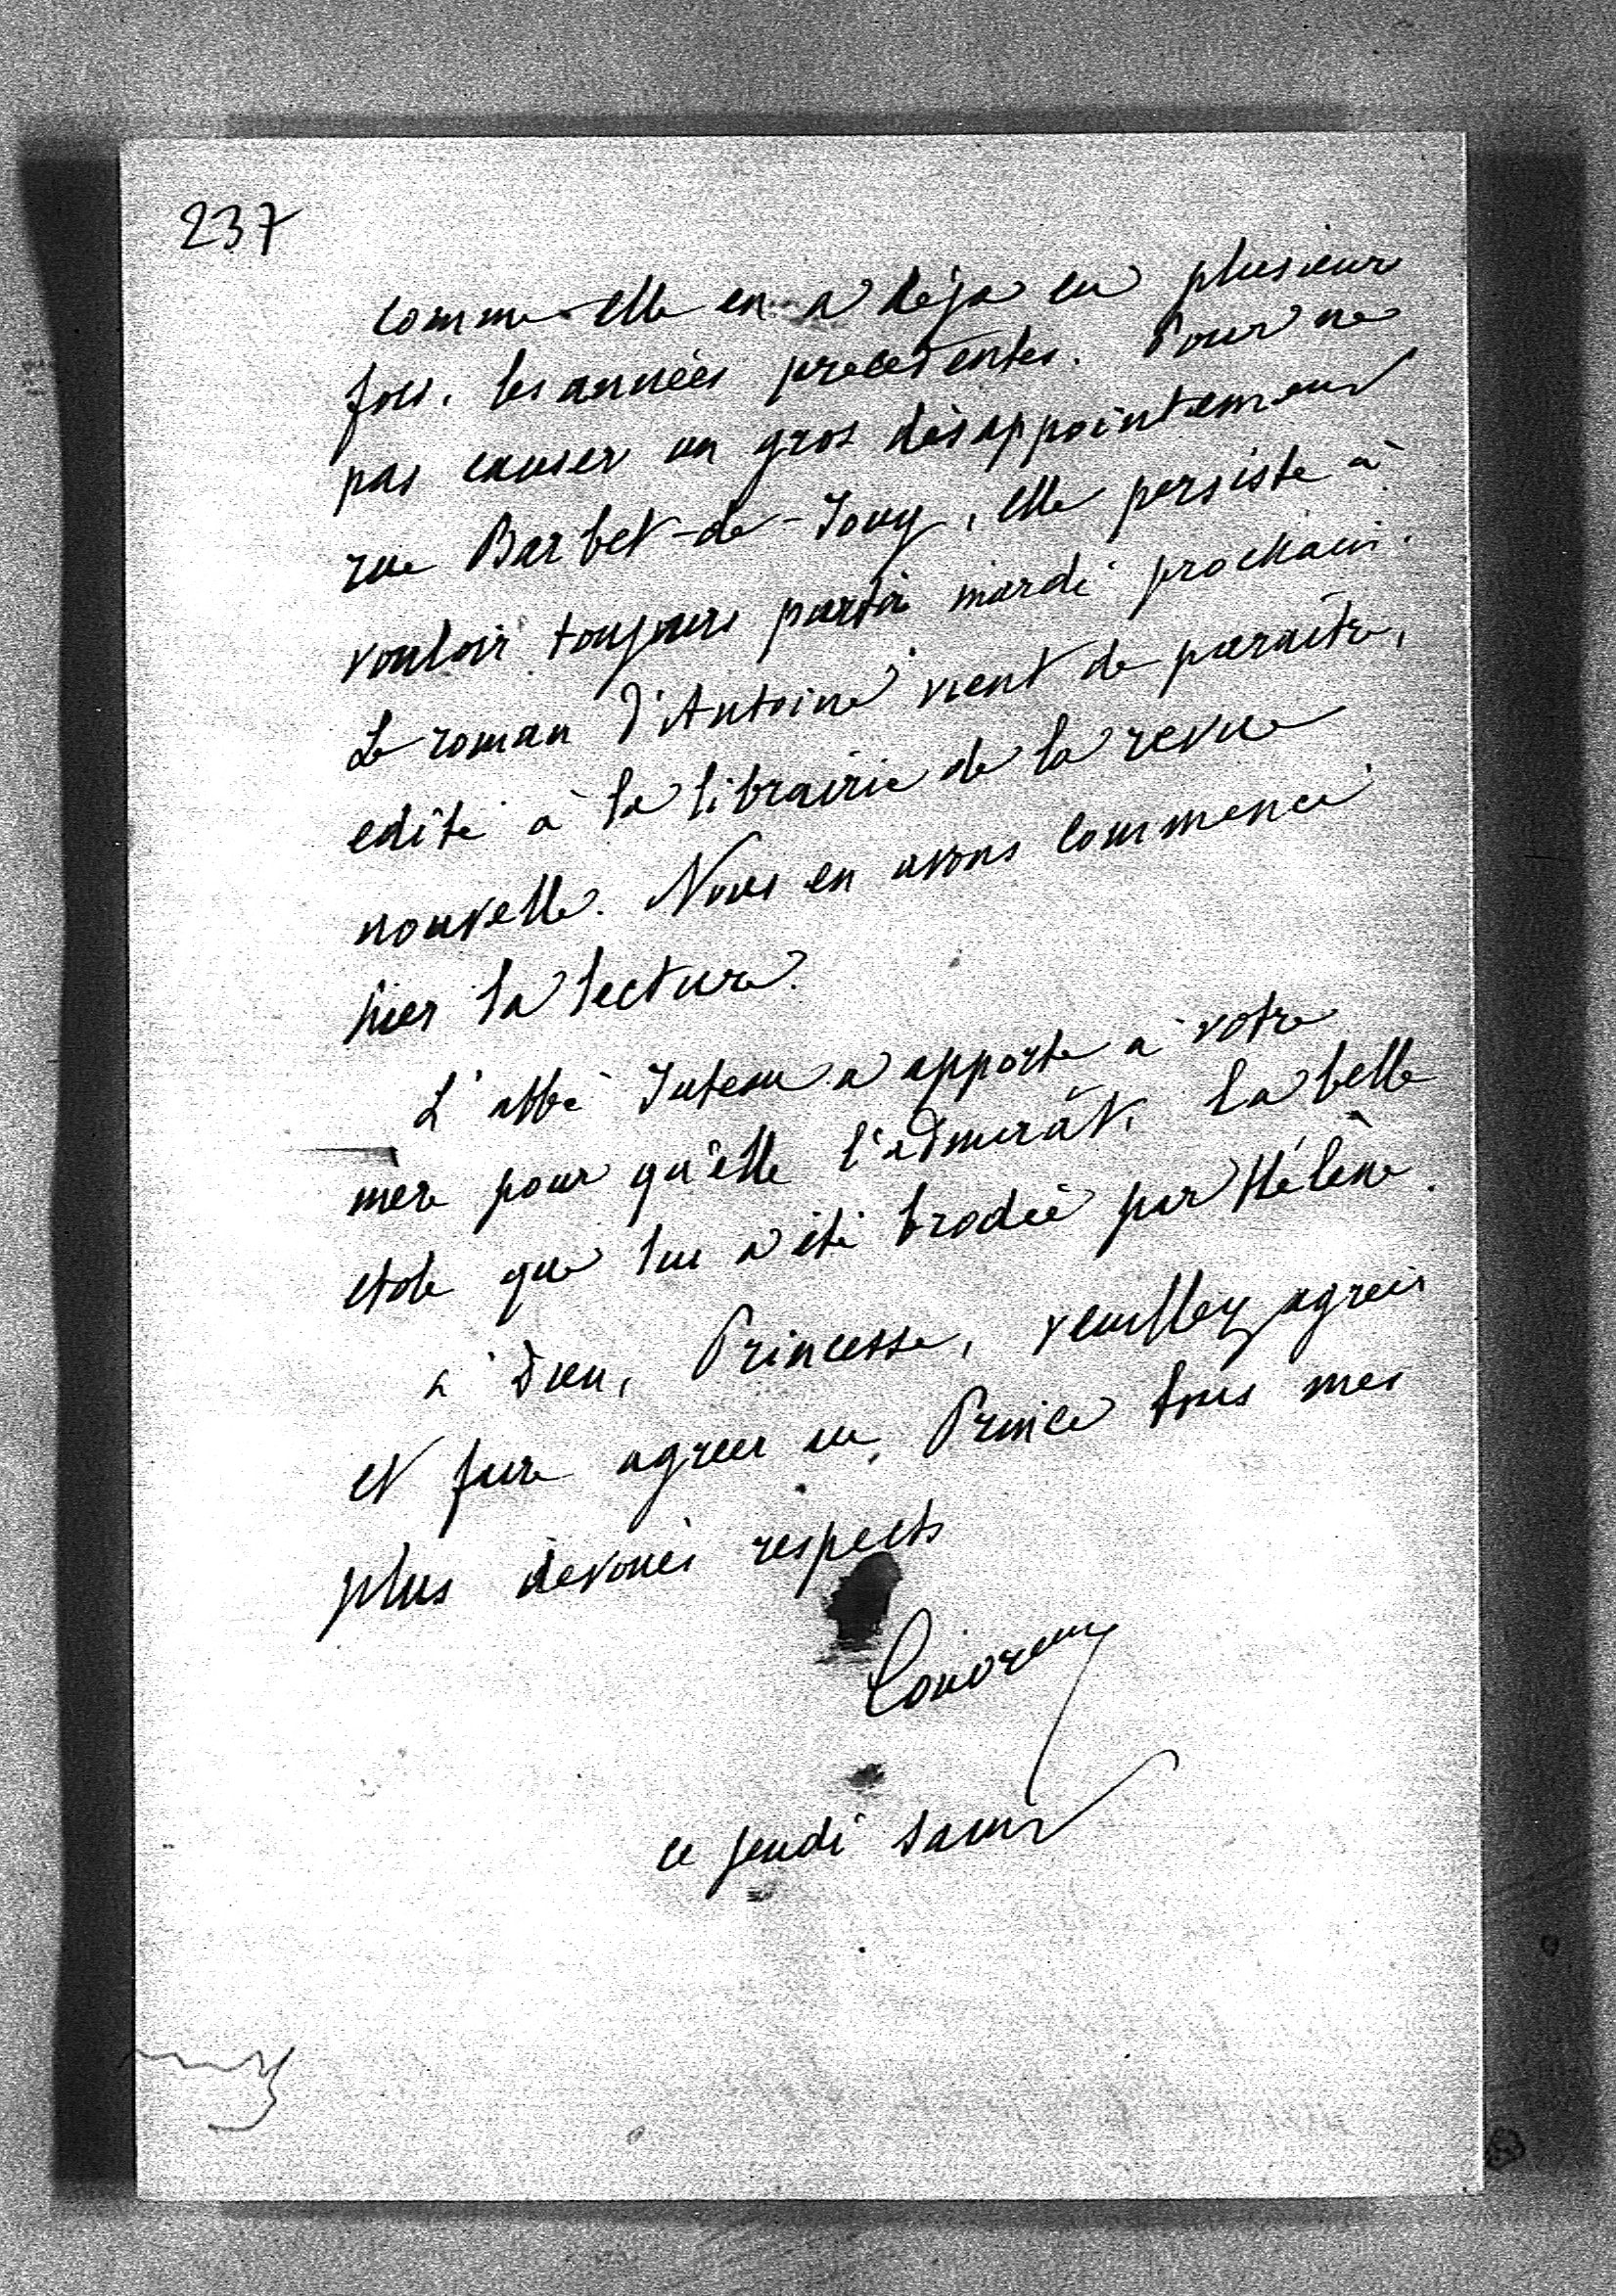 237
comme elle en a déja eu plusieurs
fois, les années precedentes. Pour ne
pas causer un gros désappointement
rue Barbet-de-Jouy, elle persiste à
vouloir toujours partir mardi prochain.
Le roman d'Antoine vient de paraître,
edité à la librairie de la revue
nouvelle. Nous en avons commencé
hier la lecture.
L'abbé Juteau a apporté à votre
mère pour qu'elle l'admirât, la belle
etole que lui a été brodée par Hélène.
à Dieu, Princesse, veuillez agréer
et faire agreer au Prince tous mes
plus devoués respects
ce jeudi saint